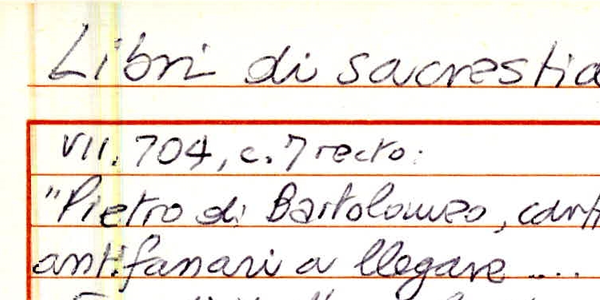 Libri di sacrestia
VII. 704, c. 7 recto:
"Pietro di Bartolomeo,
antifanari a llegare ....